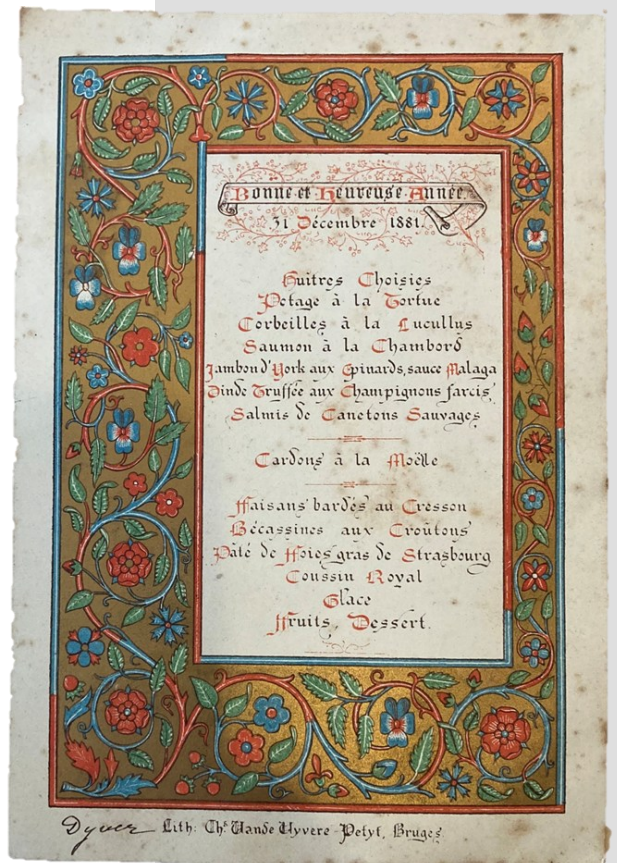 Bonne et Heureuse Année.
31 Décembre 1881.
Huitres Choisies
Potage à la Tortue
Corbeilles à la Lucullus
Saumon à la Chambord
Jambon d'York aux Epinards, sauce Malaga
Dinde Truffée aux Champignons farcis
Salmis de Canetons Sauvages
Cardons à la Moëlle
Faisans bardés au Cresson
Bécassines aux Croûtons
Pâté de Foies gras de Strasbourg
Coussin Royal
Glace
Fruits, Dessert.
Dyver Lith: Ch. Vande Vyvere-Petyt, Bruges